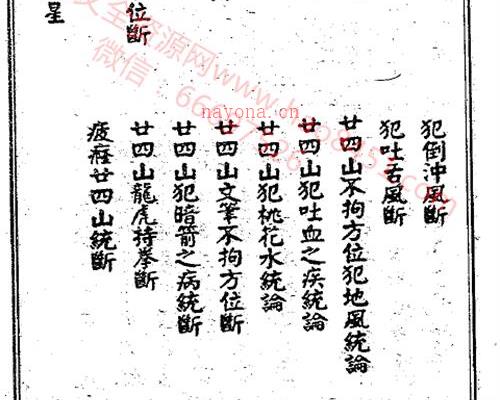 犯倒冲風斷
犯吐舌風斷
廿四山不拘方位犯地風統論
廿四山犯吐血之疾統論
廿四山犯桃花水統論
廿四山文筆不拘方位斷
廿四山犯暗箭之病統斷
廿四山龍虎持拳斷
疲癃廿四山統斷
位斷
星
nayona.cn